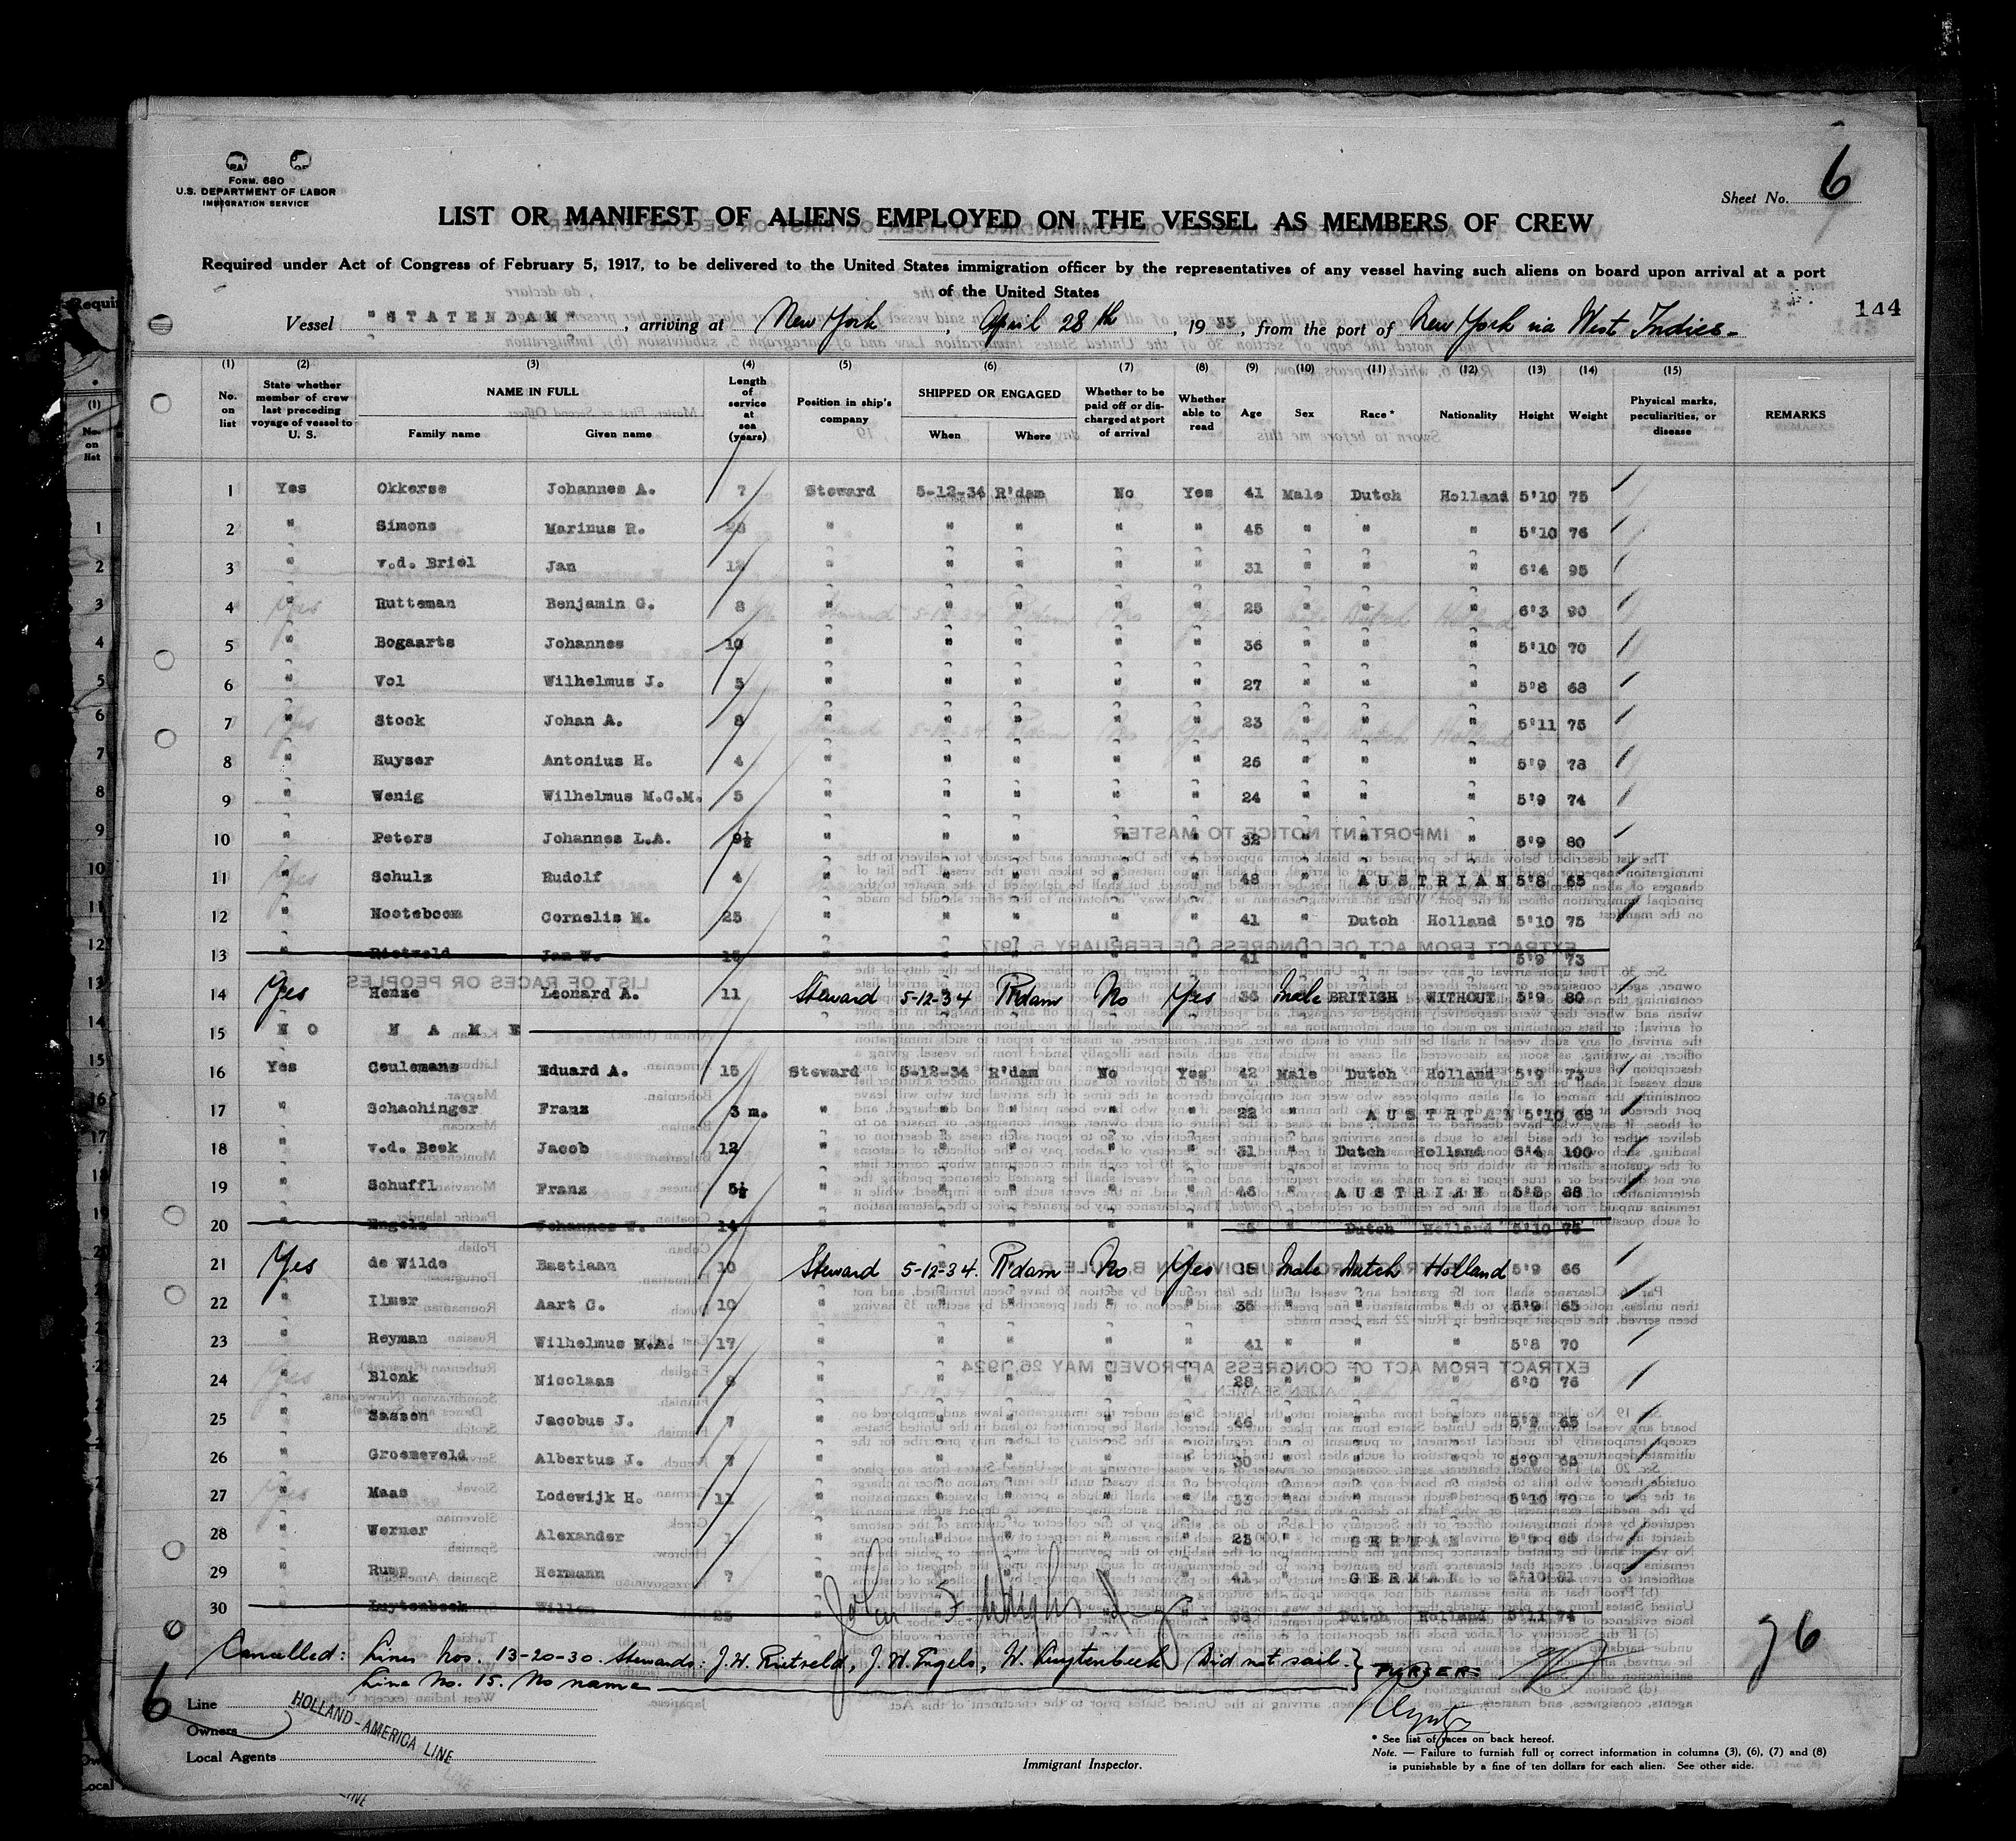 FORM. 680
U.S. DEPARTMENT OF LABOR
IMMIGRATION SERVICE
Sheet No. 6
LIST OR MANIFEST OF ALIENS EMPLOYED ON THE VESSEL AS MEMBERS OF CREW
Required under Act of Congress of February 5, 1917, to be delivered to the United States immigration officer by the representatives of any vessel having such aliens on board upon arrival at a port
of the United States
144
Vessel "STATENDAM", arriving at New York, April 28th, 1935, from the port of New York via West Indies-
(1) No. on list (2) State whether member of crew last preceding voyage of vessel to U. S. (3) NAME IN FULL Family name Given name (4) Length of service at sea (years) (5) Position in ship's company (6) SHIPPED OR ENGAGED When Where (7) Whether to be paid off or discharged at port of arrival (8) Whether able to read (9) Age (10) Sex (11) Race* (12) Nationality (13) Height (14) Weight (15) Physical marks, peculiarities, or disease REMARKS
1 Yes Okkerse Johannes A. 7 Steward 5-12-34 R'dam No Yes 41 Male Dutch Holland 5'10 75
2 " Simons Marinus R. " " " " " 45 " " " 5'10 76
3 " v.d. Briel Jan 12 " " " " " 31 " " " 6'4 95
4 " Rutteman Benjamin G. 8 " " " " " 25 " " " 6'3 90
5 " Bogaarts Johannes 10 " " " " " 36 " " " 5'10 70
6 " Vol Wilhelmus J. 5 " " " " " 27 " " " 5'8 68
7 " Stock Johan A. 8 " " " " " 23 " " " 5'11 75
8 " Huyser Antonius H. 4 " " " " " 26 " " " 5'9 78
9 " Wenig Wilhelmus M.C.M. 5 " " " " " 24 " " " 5'9 74
10 " Peters Johannes L.A. 9½ " " " " " 32 " " " 5'9 80
11 " Schulz Rudolf 4 " " " " " 48 " AUSTRIAN 5'8 65
12 " Nooteboom Cornelis M. 25 " " " " " 41 " Dutch Holland 5'10 75
13 " Rietveld Jan W. 15 " " " " " 41 " " " 5'9 73
14 Yes Henze Leonard A. 11 Steward 5-12-34 R'dam No Yes 35 Male BRITISH WITHOUT 5'9 80
15 NO NAME
16 Yes Ceulemans Eduard A. 15 Steward 5-12-34 R'dam No Yes 42 Male Dutch Holland 5'9 73
17 " Schachinger Franz 3 m. " " " " " 22 " AUSTRIAN 5'10 68
18 " v.d. Beek Jacob 12 " " " " " 31 " Dutch Holland 6'4 100
19 " Schuffl Franz 5½ " " " " " 46 " AUSTRIAN 5'8 88
20 " Engels Johannes W. 14 " " " " " " Dutch Holland 5'10 75
21 Yes de Wilde Bastiaan 10 Steward 5-12-34. R'dam No Yes Male Dutch Holland 5'9 66
22 " Ilmer Aart C. 10 " " " " " 35 " " " 5'9 65
23 " Reyman Wilhelmus M.A. 17 " " " " " 41 " " " 5'8 70
24 " Blonk Nicolaas 8 " " " " " 28 " " " 6'0 76
25 " Sassen Jacobus J. 7 " " " " " 46 " " " 5'9 65
26 " Groeneveld Albertus J. 7 " " " " " 30 " " " 5'9 65
27 " Maas Lodewijk H. 11 " " " " " 33 " " " 5'10 70
28 " Werner Alexander 1 " " " " " 25 " GERMAN 5'9 65
29 " Rump Hermann 7 " " " " " 41 " GERMAN 5'10 81
30 " Luytenbeek Willem 25 " " " " " 38 " Dutch Holland 5'11 74
Cancelled: Lines Nos. 13-20-30. Stewards: J.W. Rietveld, J.W. Engels, W. Luytenbeek Did not sail. } PURSER
Line No. 15. No name
76
6
Line HOLLAND-AMERICA LINE
Owners
Local Agents
Immigrant Inspector.
* See list of races on back hereof.
Note. — Failure to furnish full or correct information in columns (3), (6), (7) and (8)
is punishable by a fine of ten dollars for each alien. See other side.